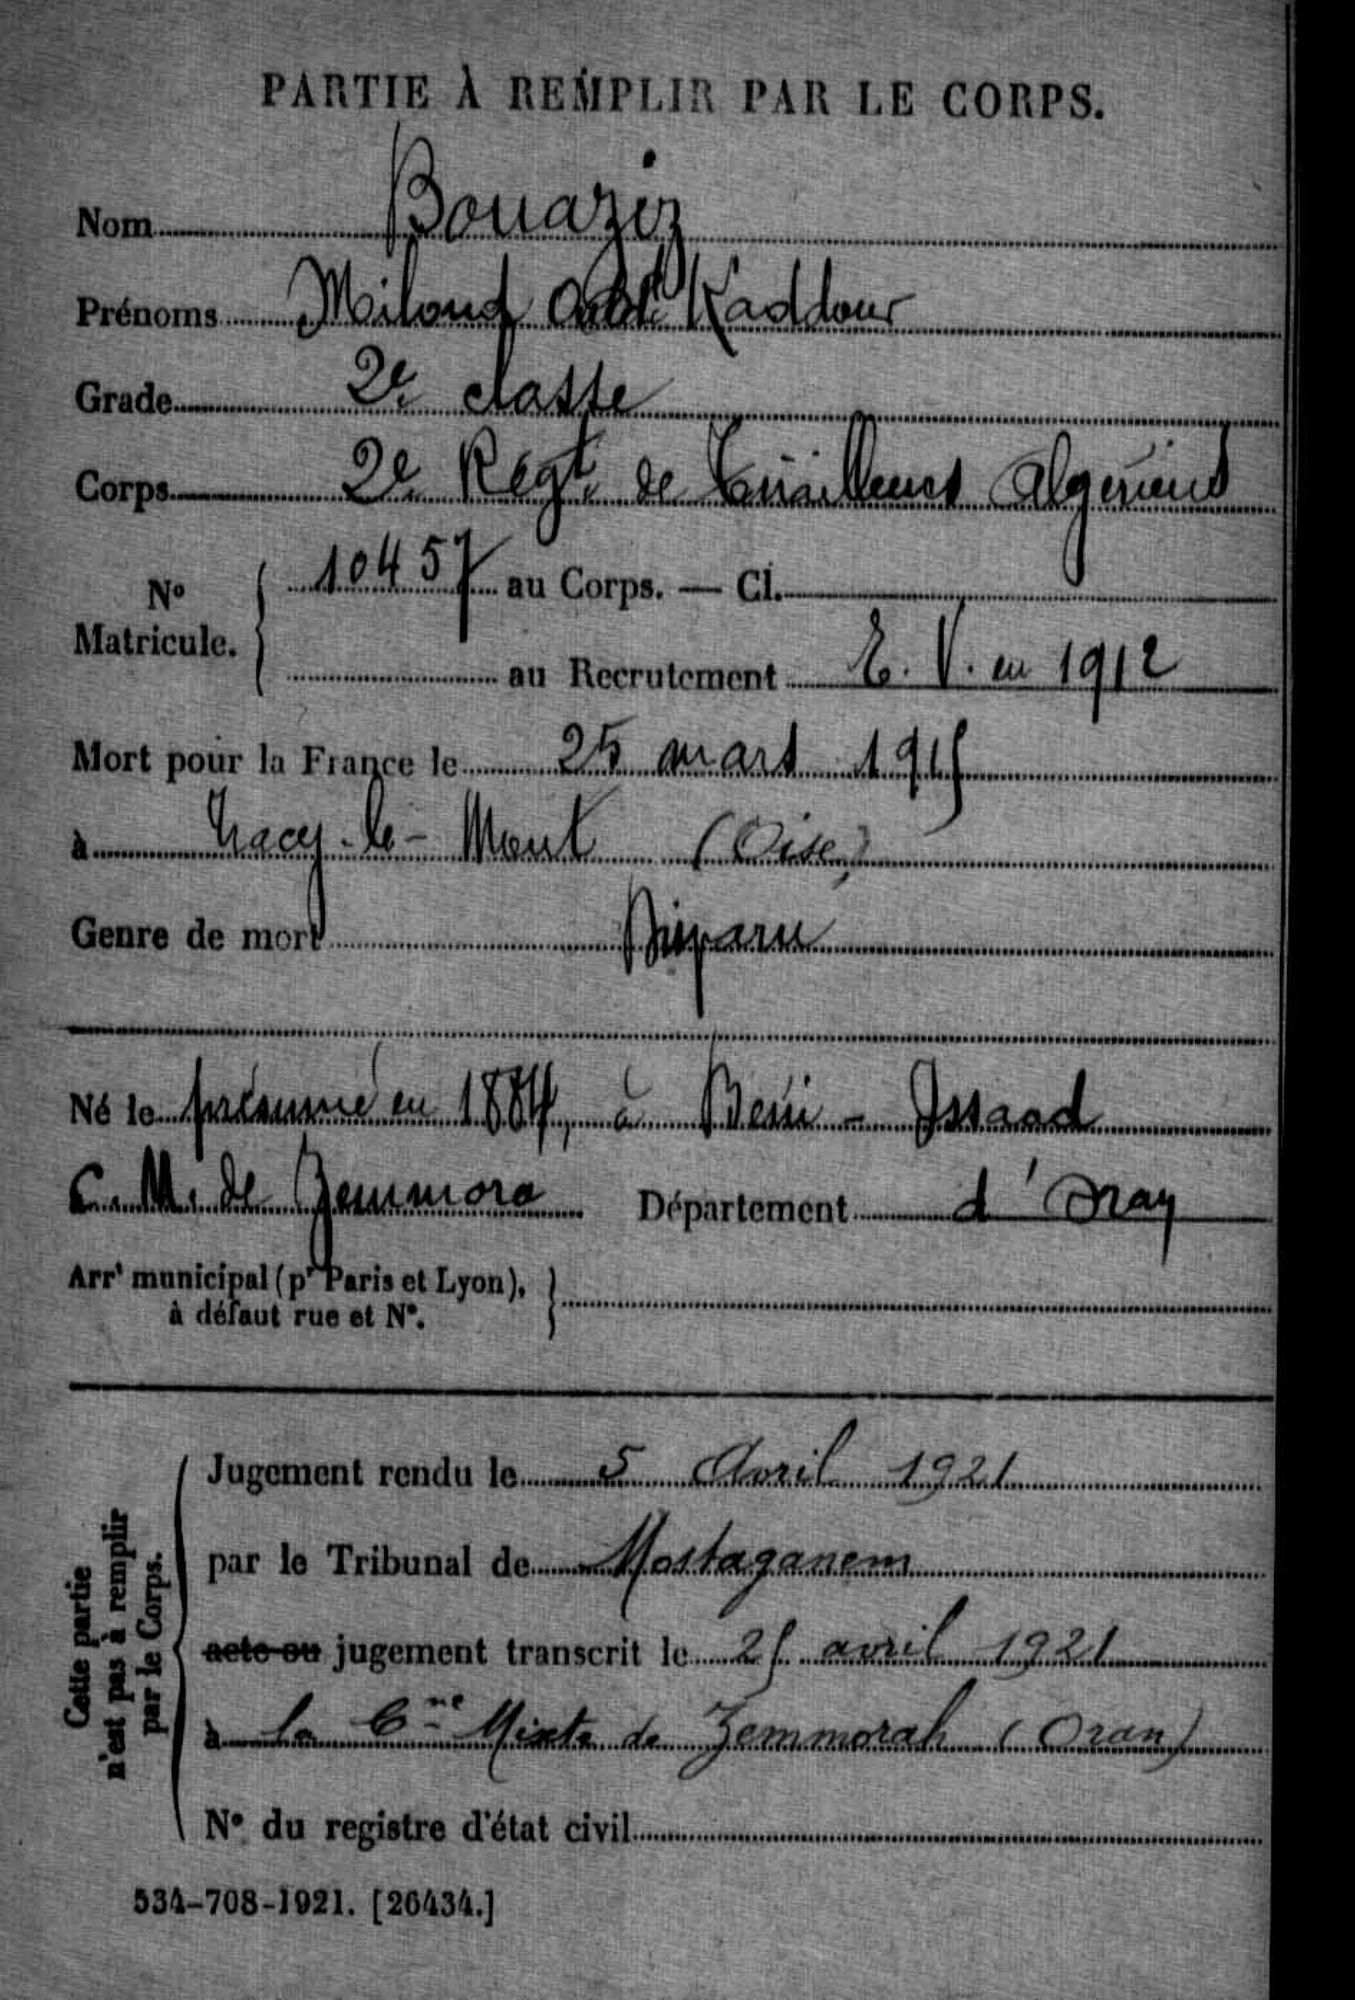 PARTIE À REMPLIR PAR LE CORPS.
Nom Bouaziz
Prénoms Miloud Kaddour
Grade 2e classe
Corps 2e Régt de Tirailleurs Algériens
No Matricule. 10457 au Corps. — Cl.
au Recrutement E. V. en 1912
Mort pour la France le 25 mars 1915
à Tracy-le-Mont (Oise)
Genre de mort Disparu
Né le présumé en 1884, à Beni-Issaad
C. M. de Zemmora Département d'Oran
Arrt municipal (pr Paris et Lyon),
à défaut rue et N°.
Cette partie
n'est pas à remplir
par le Corps.
Jugement rendu le 5 Avril 1921
par le Tribunal de Mostaganem
acte ou jugement transcrit le 25 avril 1921
à la Cne Mixte de Zemmorah (Oran)
N° du registre d'état civil
534-708-1921. [26434.]